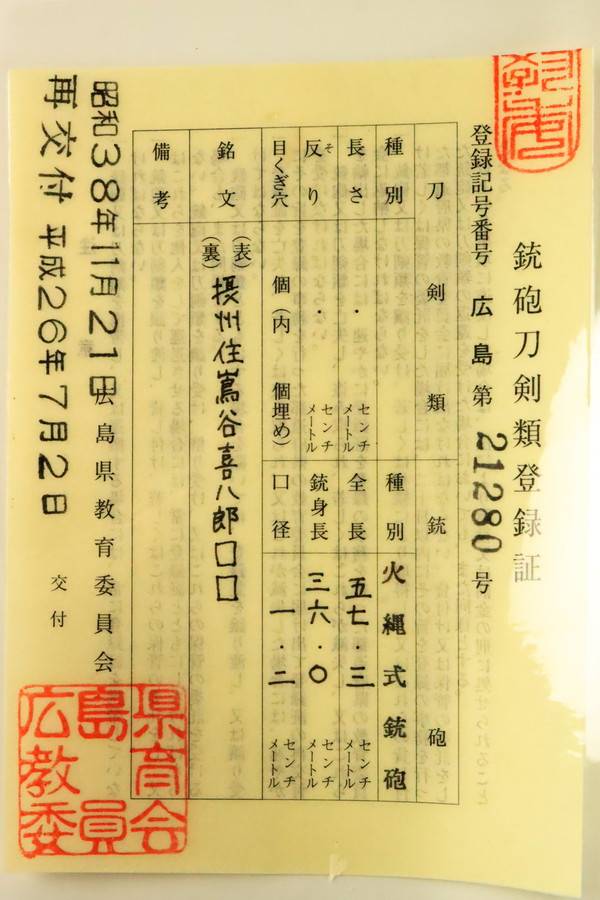 銃砲刀剣類登録証
登録記号番号 広島第 21280 号
刀剣類
銃砲
種別
長さ ・ センチメートル
反り ・ センチメートル
そ
目くぎ穴 個(内 個埋め)
種別 火縄式銃砲
全長 五七・三 センチメートル
銃身長 三六・〇 センチメートル
口径 一・二 センチメートル
銘文 (表) 摂州住嶌谷喜八郎□□
(裏)
備考
昭和38年11月21日
広島県教育委員会
再交付 平成26年7月2日
交付
広島県
教育
委員会